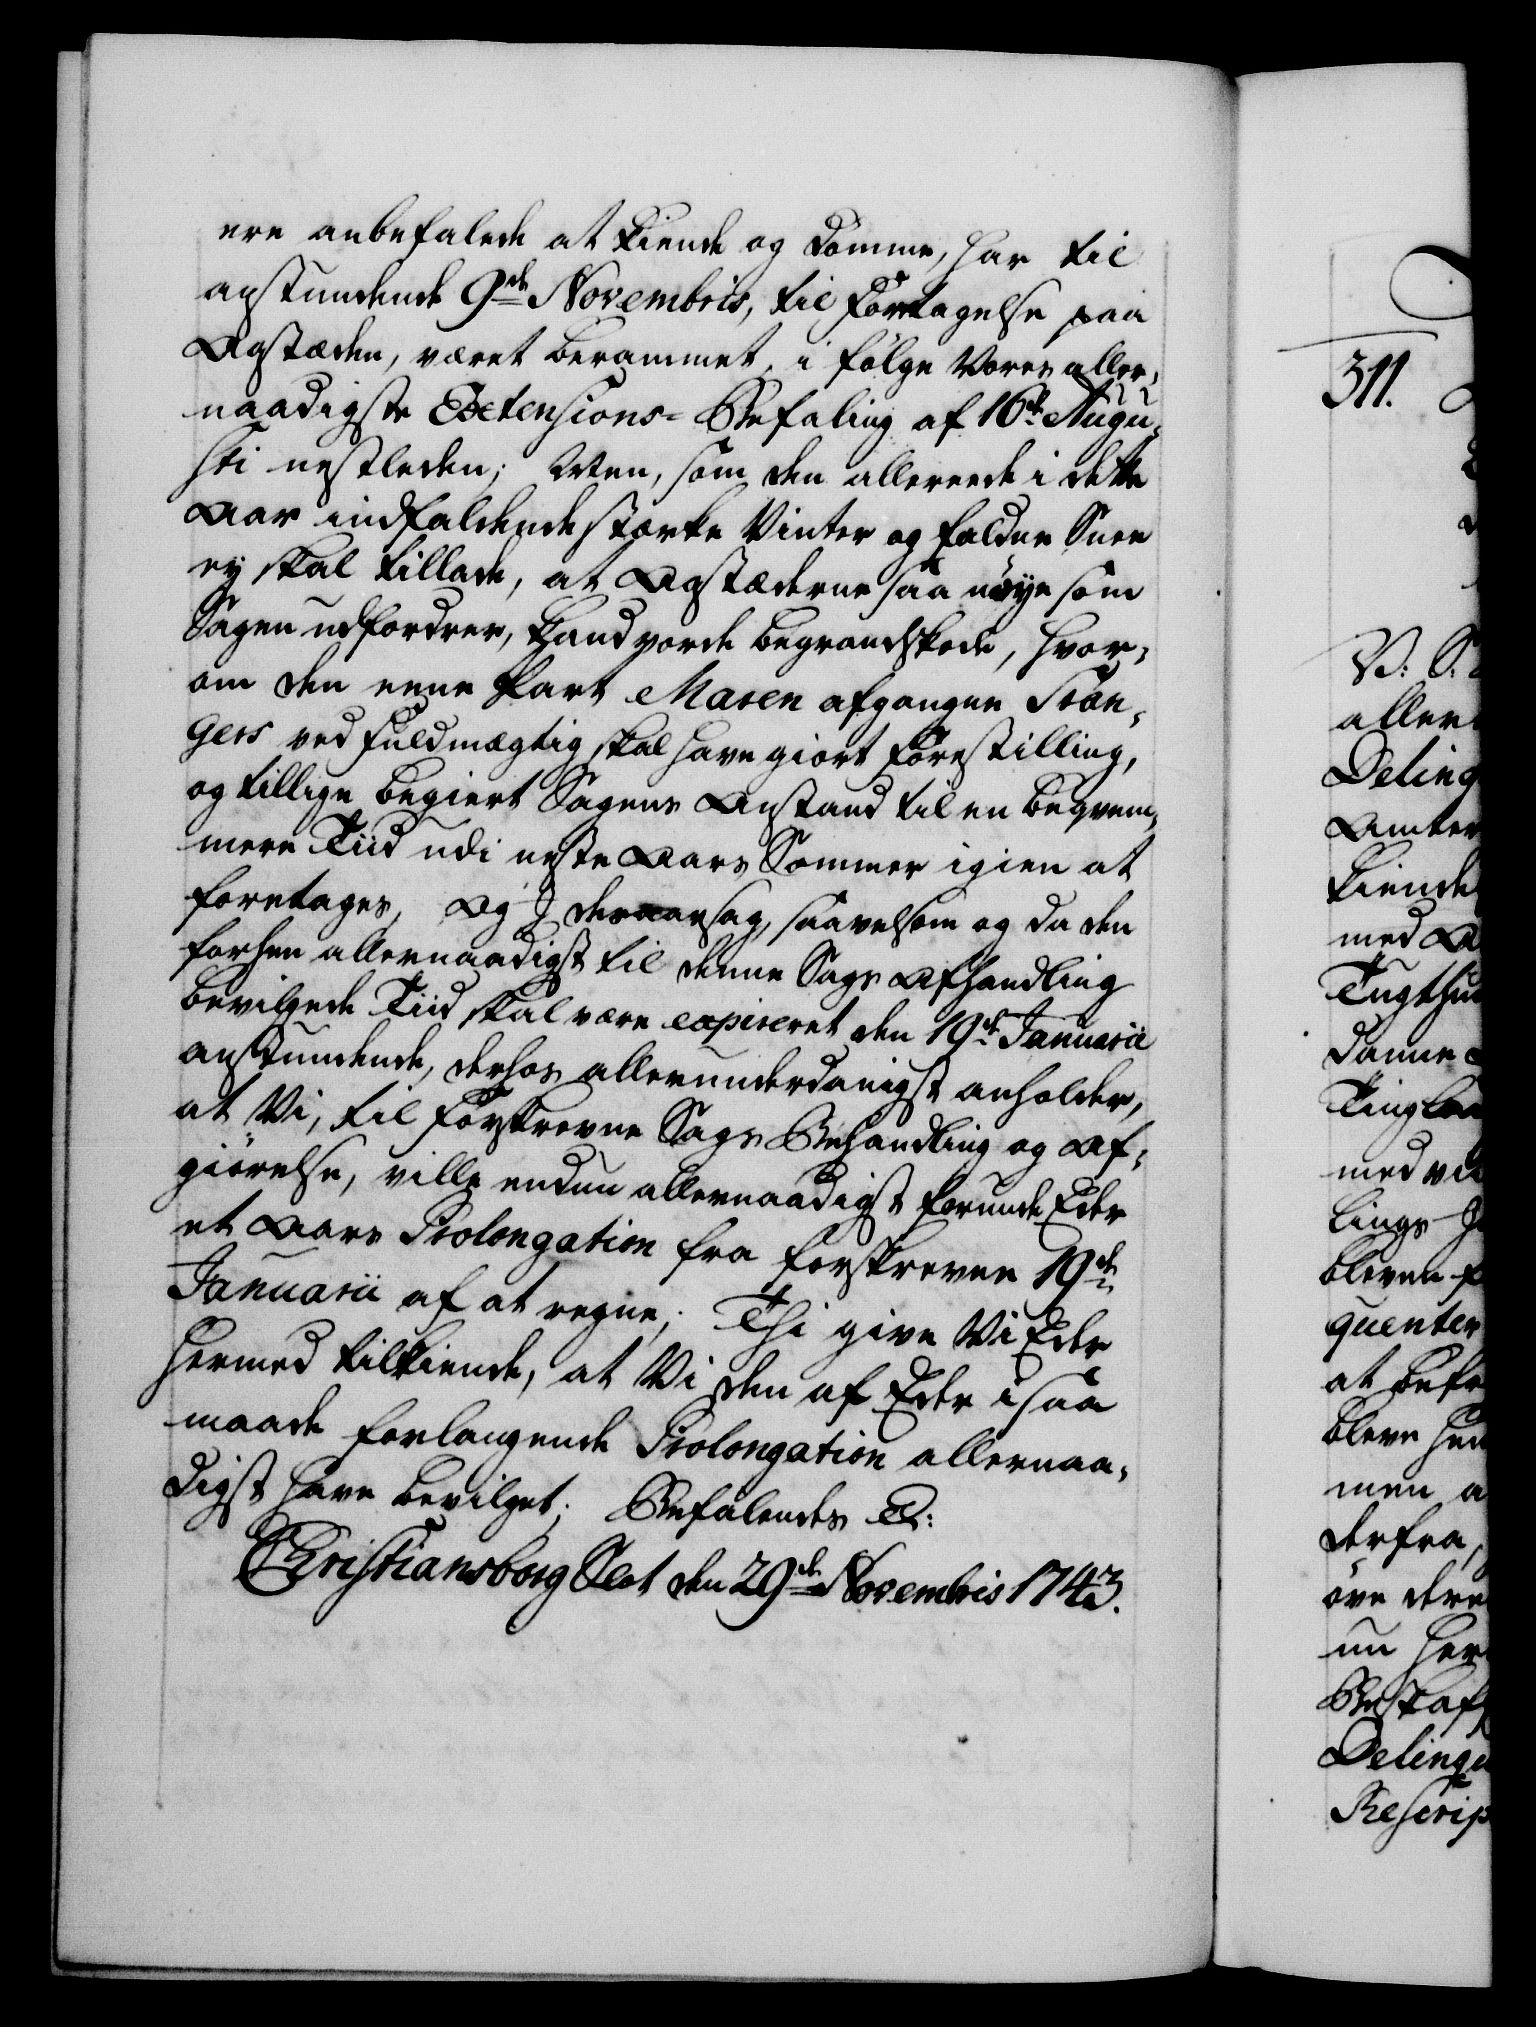 ere anbefalede at kiende og dømme, har til
anstundende 9de Novembris, til Foretagelse paa
Aastæden, været berammet, i følge Vores aller-
naadigste Extensions-Befaling af 16de Augu-
sti nestleden; Men, som den allereede i dette
Aar indfaldende stærke Vinter og faldne Snee
ey skal tillade, at Aastæderne saa nøye som
Sagen udfordrer, kand vorde begrandskede, hvor-
om den eene Part Maren afgangne
gers ved Fuldmægtig skal have giort Forestilling,
og tillige begiert Sagens Anstand til en beqvem-
mere Tiid udi neste Aars Sommer igien at
foretages, Og I deraarsag, saavelsom og da den
forhen allernaadigst til denne Sags Afhandling
bevilgede Tiid skal være expireret den 19de Januarii
anstundende, derhos allerunderdanigst anholder,
at Vi, til Forskrevne Sags Behandling og Af-
giørelse, ville endnu allernaadigst forunde Eder
et Aars Prolongation fra forskrevne 19de
Januarii af at regne; Thi give Vi Eder
hermed tilkiende, at Vi den af Eder i saa
maade forlangende Prolongation allernaa-
digst have bevilget; Befalendes &:
Christiansborg Slot den 29de Novembris 1743.
311.
V: S:
aller
Delinq
Amter
kiende
med A
Tugthu
danne
Tingla
med
lings
bleven f
quenter
at befr
bleve
men a
derfra,
øve dere
nu her
Delinqu
Rescrip